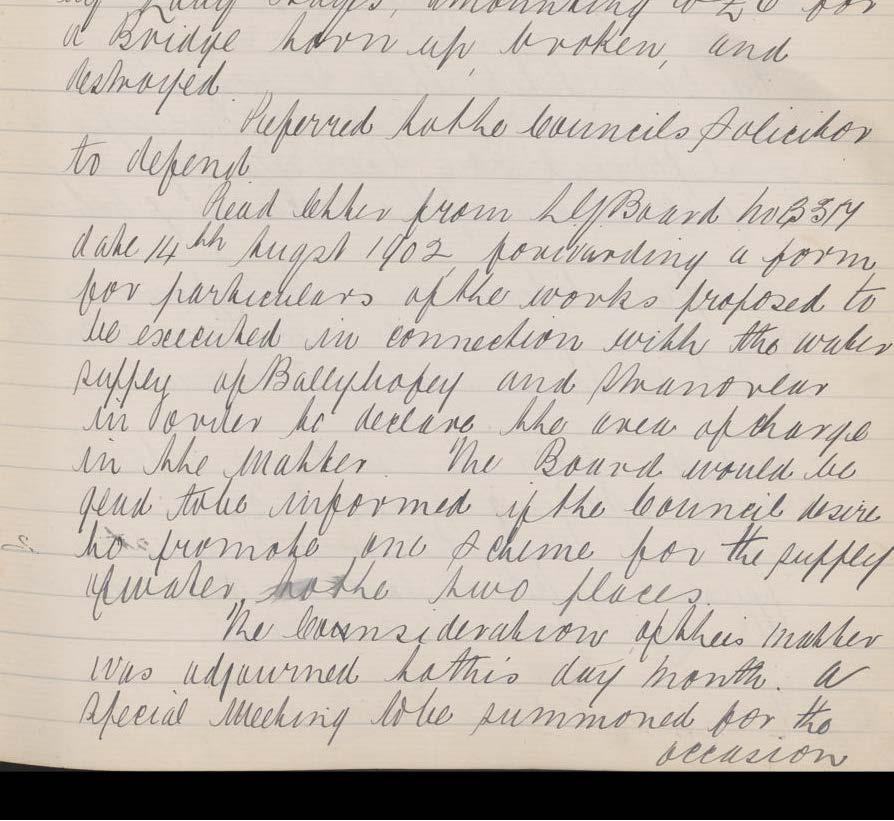 amounting to £6 for
a Bridge torn up, broken, and
destroyed.
Referred to the Councils Solicitor
to defend
Read letter from LGBoard No
date 14th Augst 1902, forwarding a form
for particulars of the works proposed to
be executed in connection with the water
supply of Ballybofey and Stranorlar
in order to declare the area of charge
in the matter. The Board would be
glad to be informed if the Council desire
to promote one scheme for the supply
of water to the two places.
The Counsideration of theis matter
was adjourned to this day month. A
special meeting to be summoned for the
occasion